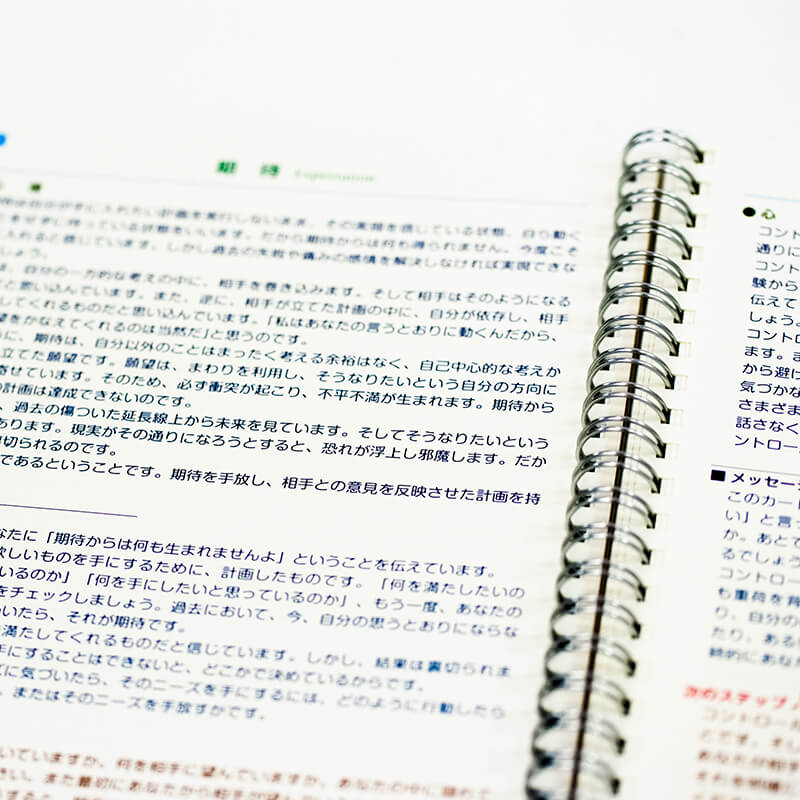 期 待 Expectation
。だから期待からは何も得られません。今度こそ
入れると信じています。しかし過去の失敗や痛みの感情を解決しなければ実現できな
しょう。
、自分の一方的な考えの中に、相手を巻き込みます。そして相手はそのようになる
と思い込んでいます。また、逆に、相手が立てた計画の中に、自分が依存し、相手
してくれるものだと思い込んでいます。「私はあなたの言うとおりに動くんだから、
望をかなえてくれるのは当然だ」と思うのです。
に、期待は、自分以外のことはまったく考える余裕はなく、自己中心的な考えか
立てた願望です。願望は、まわりを利用し、そうなりたいという自分の方向に
寄せています。そのため、必ず衝突が起こり、不平不満が生まれます。期待から
計画は達成できないのです。
、過去の傷ついた延長線上から未来を見ています。そしてそうなりたいという
あります。現実がその通りになろうとすると、恐れが浮上し邪魔します。だか
切られるのです。
であるということです。期待を手放し、相手との意見を反映させた計画を持
なたに「期待からは何も生まれませんよ」ということを伝えています。
欲しいものを手にするために、計画したものです。「何を満たしたいの
いるのか」「何を手にしたいと思っているのか」、もう一度、あなたの
をチェックしましょう。過去において、今、自分の思うとおりにならな
いたら、それが期待です。
満たしてくれるものだと信じています。しかし、結果は裏切られま
手にすることはできないと、どこかで決めているからです。
に気づいたら、そのニーズを手にするには、どのように行動したら
。またはそのニーズを手放すかです。
いていますか。何を相手に望んでいますか。あなたの中に隠れて
●心
コント
通りに
コント
験から
伝えて
しょう。
コントロー
ます。ま
から避け
気づかな
さまざま
話さなく
ントロー
■メッセージ
このカード
い」と言っ
か。あとで
るでしょう
コントロー
も重荷を背
り、自分の
たり、ある
終的にあな
次のステップ
コントロール
とです。そし
あなたが相手
それを明確に